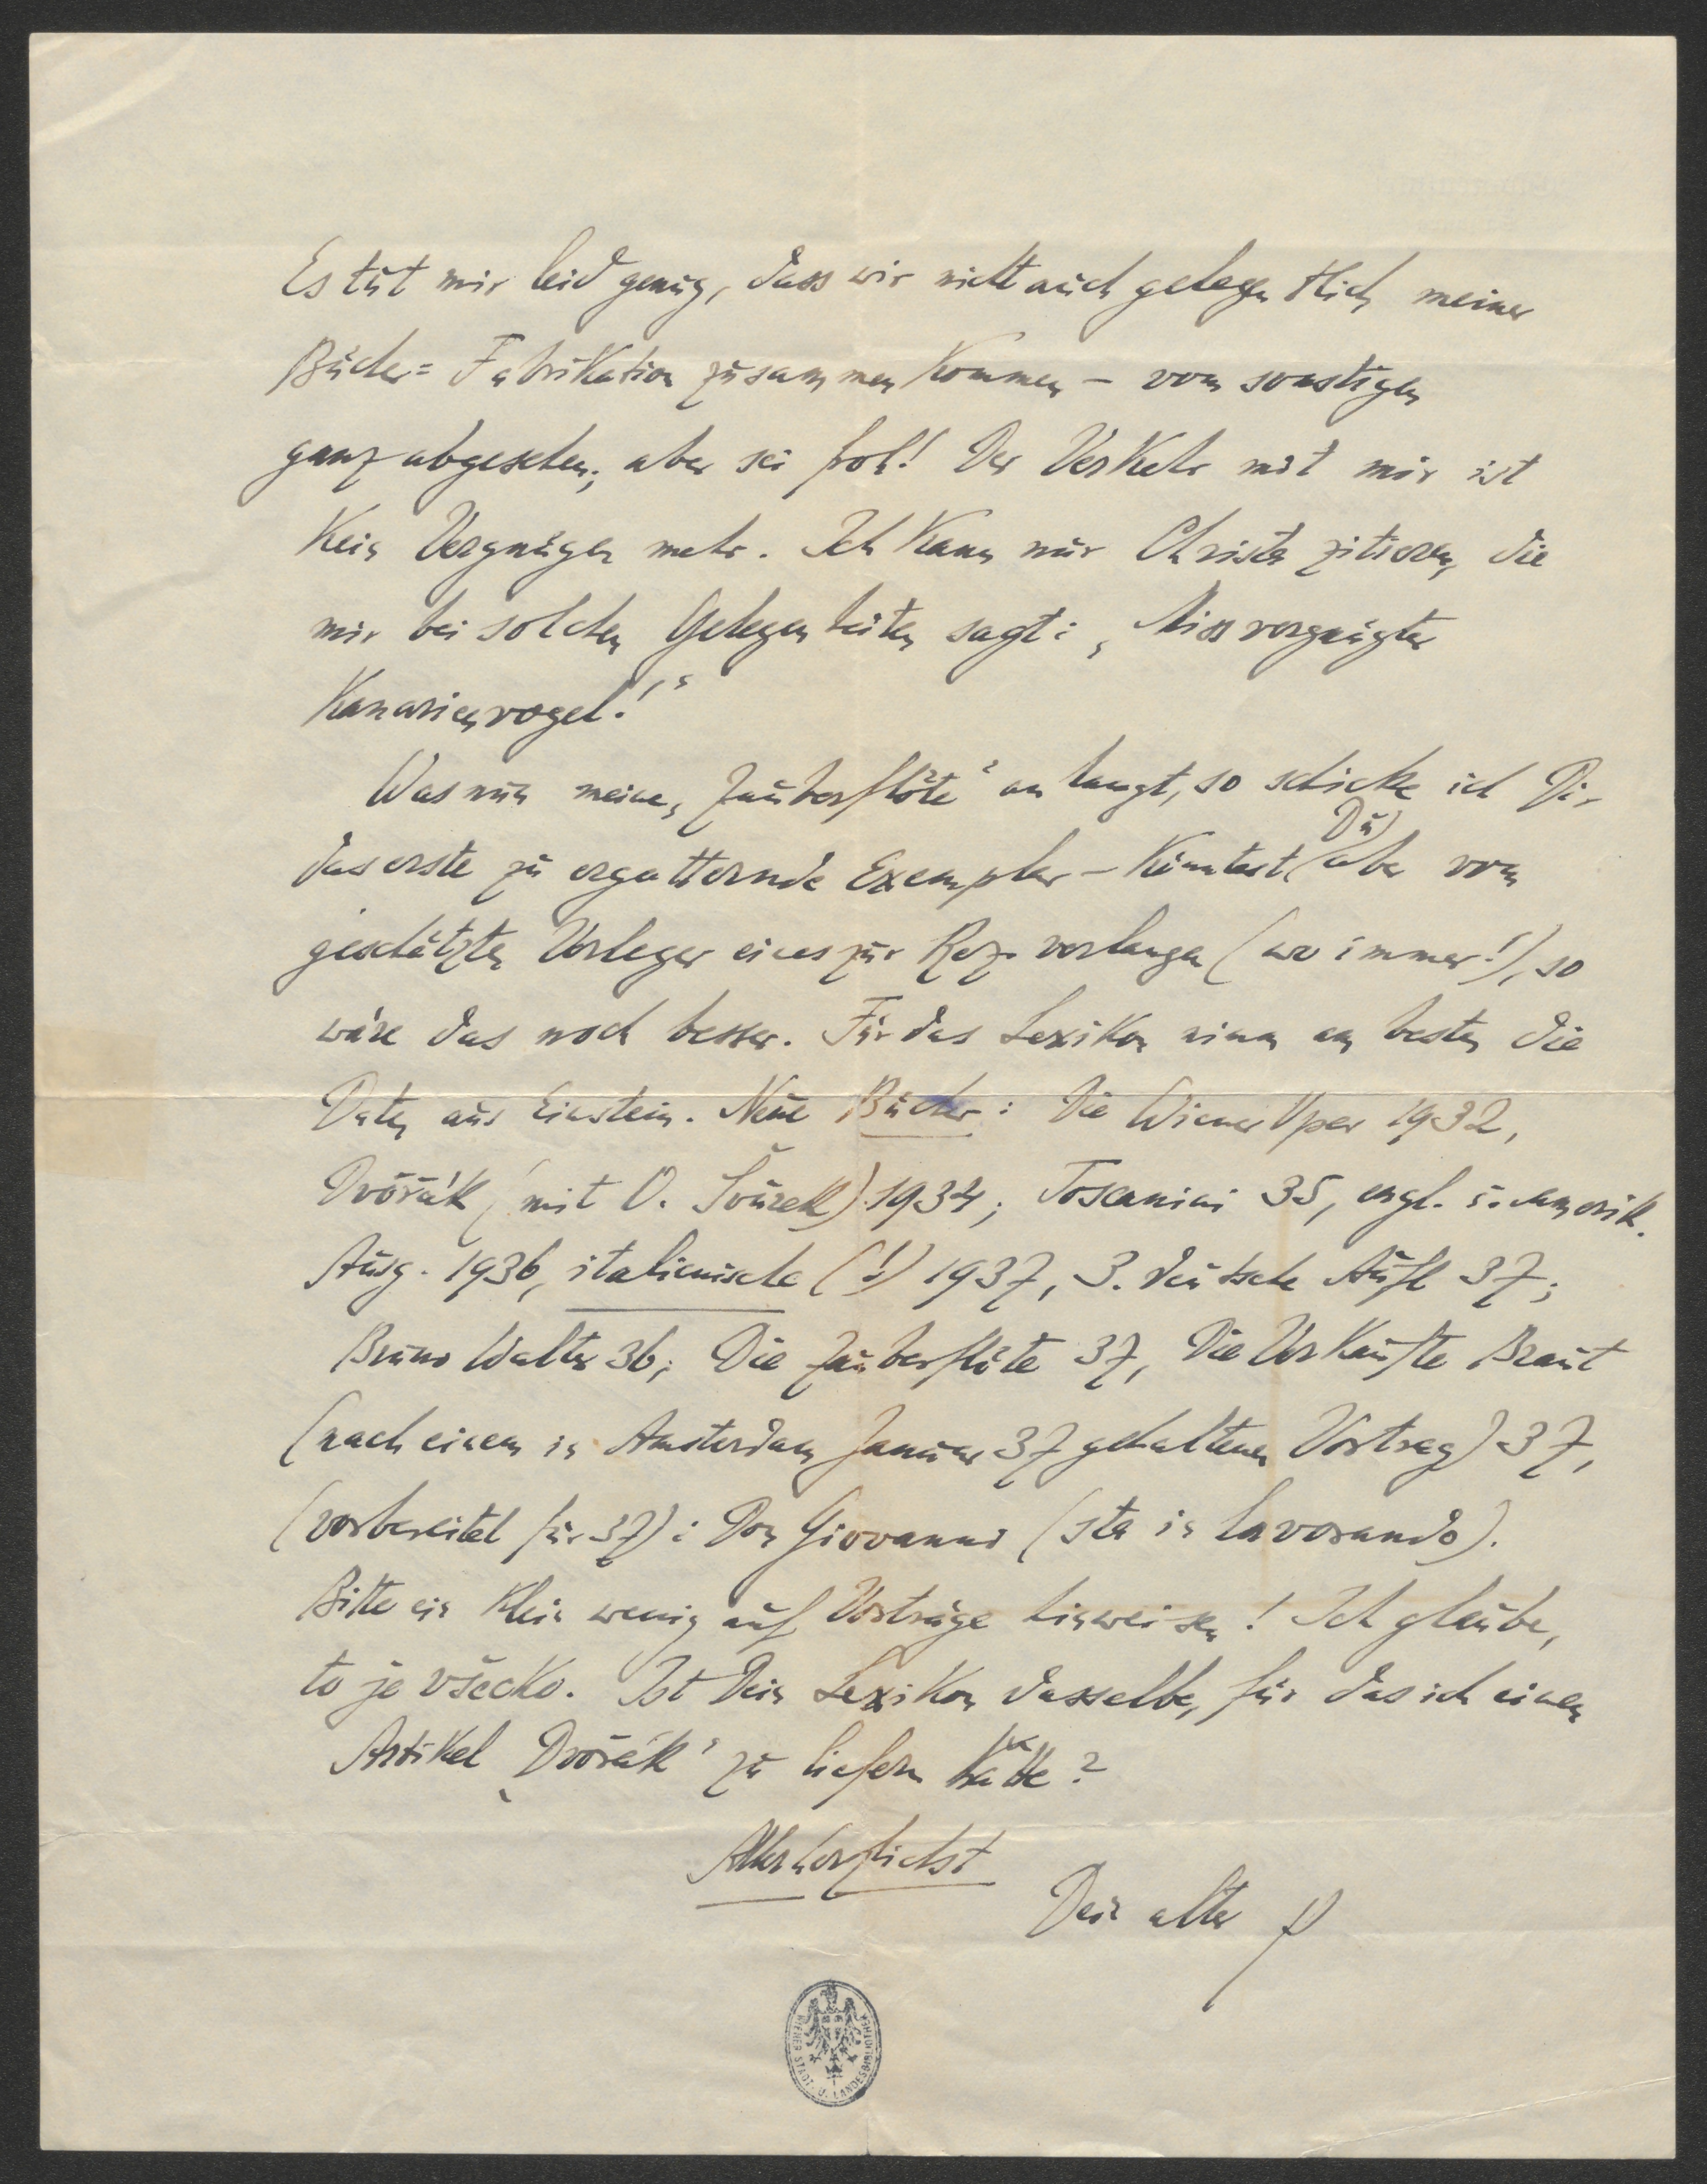 Es tut mir leid genug, dass wir nicht auch gelegentlich meiner
Bücher= Fabrikation zusammen kommen – vom sonstigen
ganz abgesehen; aber sei froh! Der Verkehr mit mir ist
kein Vergnügen mehr. Ich kann nur Christa zitieren, die
mir bei solchen Gelegenheiten sagt: „Missvergnügter
Kanarienvogel!“
Was nun meine „Zauberflöte“ anlangt, so schicke ich Dir
das erste zu ergatternde Exemplar – könntest Du aber vom
geschätzten Verleger eines zur Rez. verlangen (wo immer!), so
wäre das noch besser. Für das Lexikon nimm am besten die
Daten aus Einstein. Neue Bücher: Die Wiener Oper 1932,
Dvořák (mit O. Šourek) 1934; Toscanini 35, engl. u. amerik.
Ausg. 1936, italienische (!) 1937, 3. deutsche Aufl 37;
Bruno Walter 36; Die Zauberflöte 37, Die Verkaufte Braut
(nach einem in Amsterdam Januar 37 gehaltenen Vortrag) 37,
(vorbereitet für 37): Don Giovanni (sta in lavorando).
Bitte ein klein wenig auf Vorträge hinweisen! Ich glaube,
to je všecko. Ist Dein Lexikon dasselbe, für das ich einen
Artikel „Dvořák“ zu liefern hätte?
Allerherzlichst
Dein alter P
WIENER STADT- U. LANDESBIBLIOTHEK